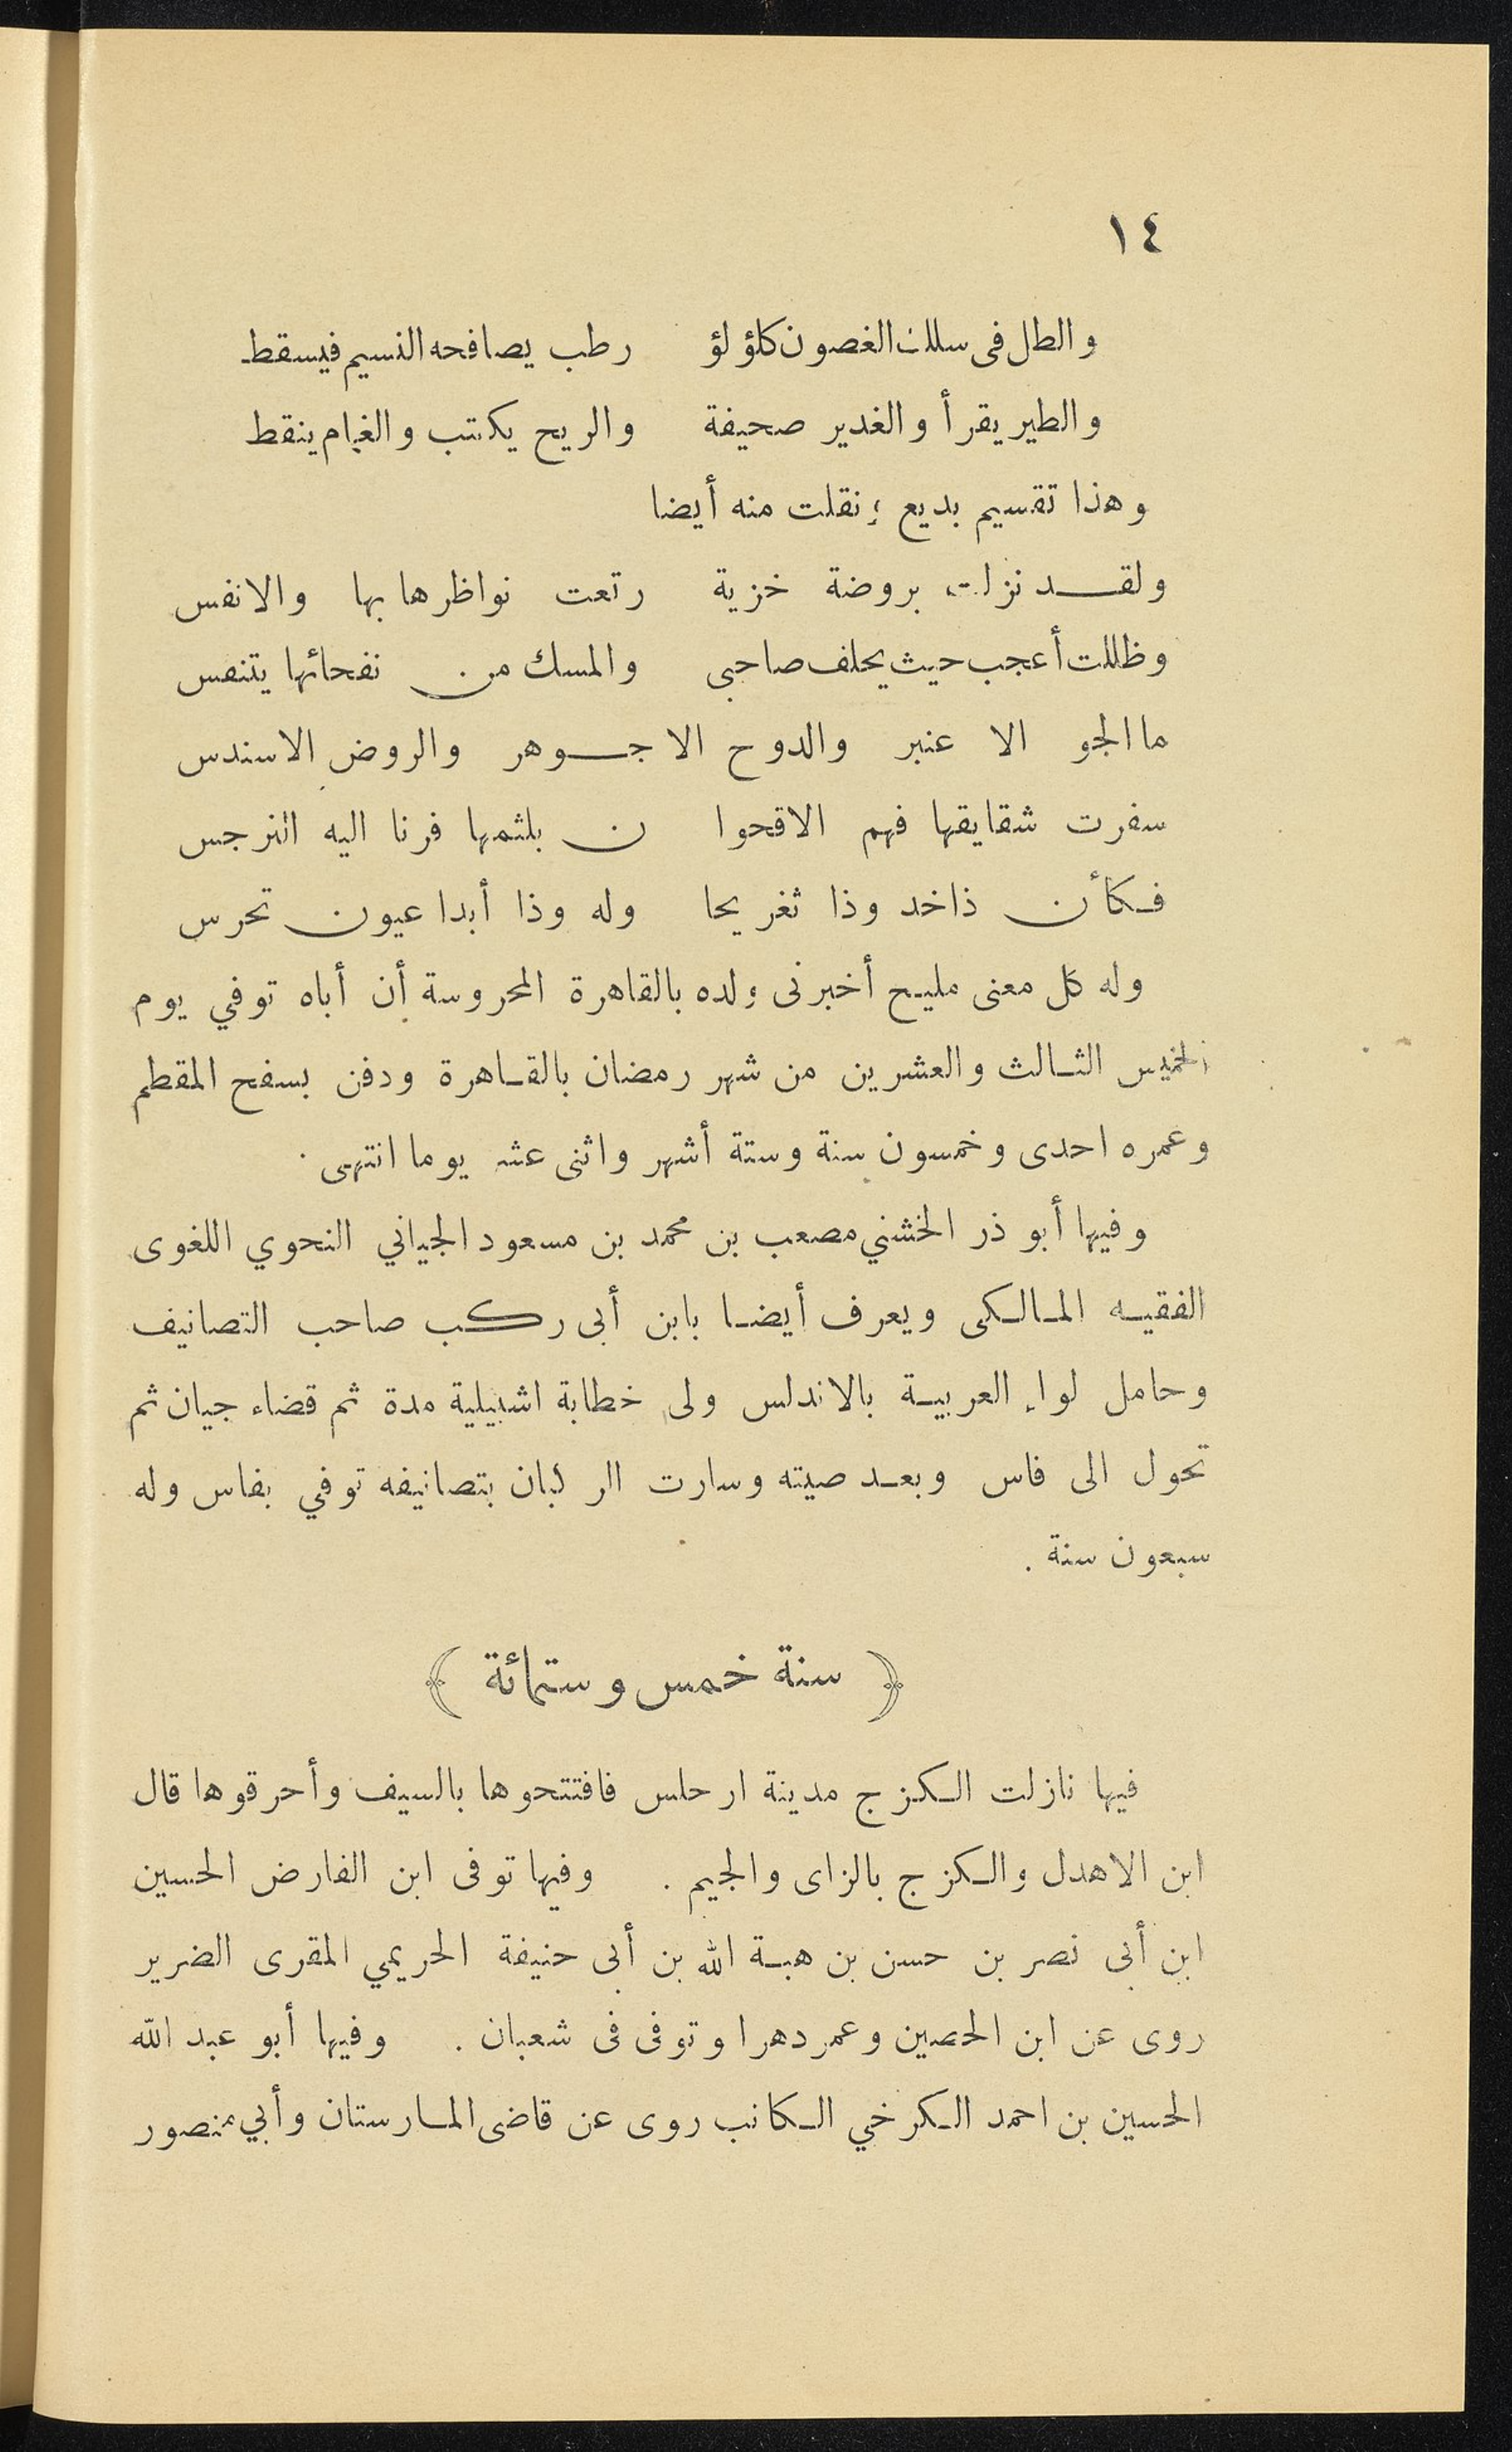 ١٤
والطل فى سلك الغصون كلؤلؤ رطب يصافحه النسيم فيسقط
والطير يقرأ والغدير صحيفة والريح يكتب والغمام ينقط
وهذا تقسيم بديع ؛ نقلت منه أيضا
ولقد نزلت بروضة خزية رتعت نواظرها بها والانفس
وظللت أعجب حيث يحلف صاحبى والمسك من نفحاتها يتنفس
ما الجو الا عنبر والدوح الا جوهر والروض الا سندس
سفرت شقايقها فهم الاقحوا ن بلثمها فرنا اليه النرجس
فكأن ذا خد وذا ثغر يحا وله وذا أبدا عيون تحرس
وله كل معنى مليح أخبرنى ولده بالقاهرة المحروسة أن أباه توفي يوم
الخميس الثالث والعشرين من شهر رمضان بالقاهرة ودفن بسفح المقطم
وعمره احدى وخمسون سنة وستة أشهر واثنى عشر يوما انتهى .
وفيها أبو ذر الخشني مصعب بن محمد بن مسعود الجياني النحوي اللغوى
الفقيه المالكى ويعرف أيضا بابن أبى ركب صاحب التصانيف
وحامل لواء العربية بالاندلس ولى خطابة اشبيلية مدة ثم قضاء جيان ثم
تحول الى فاس وبعد صيته وسارت الركبان بتصانيفه توفي بفاس وله
سبعون سنة .
﴿ سنة خمس وستمائة ﴾
فيها نازلت الكزج مدينة ارحلس فافتتحوها بالسيف وأحرقوها قال
ابن الاهدل والكزج بالزاى والجيم . وفيها توفى ابن الفارض الحسين
ابن أبى نصر بن حسن بن هبة الله بن أبى حنيفة الحريمي المقرى الضرير
روى عن ابن الحصين وعمر دهرا وتوفى فى شعبان . وفيها أبو عبد الله
الحسين بن احمد الكرخي الكاتب روى عن قاضى المارستان وأبي منصور